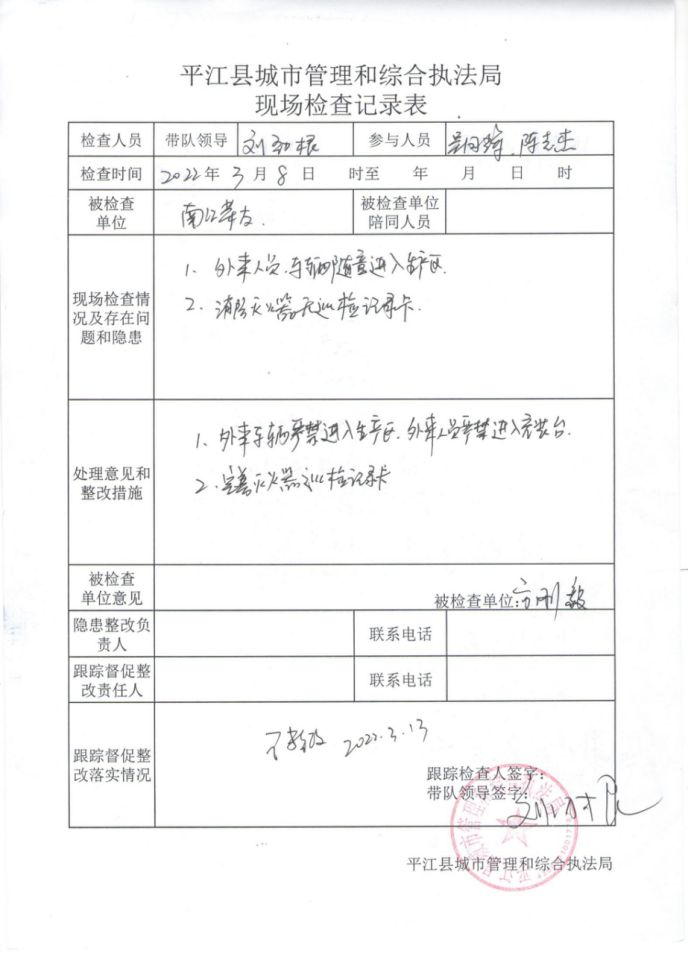 平江县城市管理和综合执法局
现场检查记录表
检查人员 带队领导 刘 根 参与人员 陈志杰
检查时间 2022年3月8日 时至 年 月 日 时
被检查单位 南江 被检查单位陪同人员
现场检查情况及存在问题和隐患
1、外来人员、车辆随意进入生产区.
2、消防灭火器无巡检记录卡.
处理意见和整改措施
1、外来车辆严禁进入生产区.外来人员严禁进入充装台.
2、完善灭火器巡检记录卡
被检查单位意见 被检查单位:方刚毅
隐患整改负责人 联系电话
跟踪督促整改责任人 联系电话
跟踪督促整改落实情况
2022.3.13
跟踪检查人签字:
带队领导签字:
平江县城市管理和综合执法局